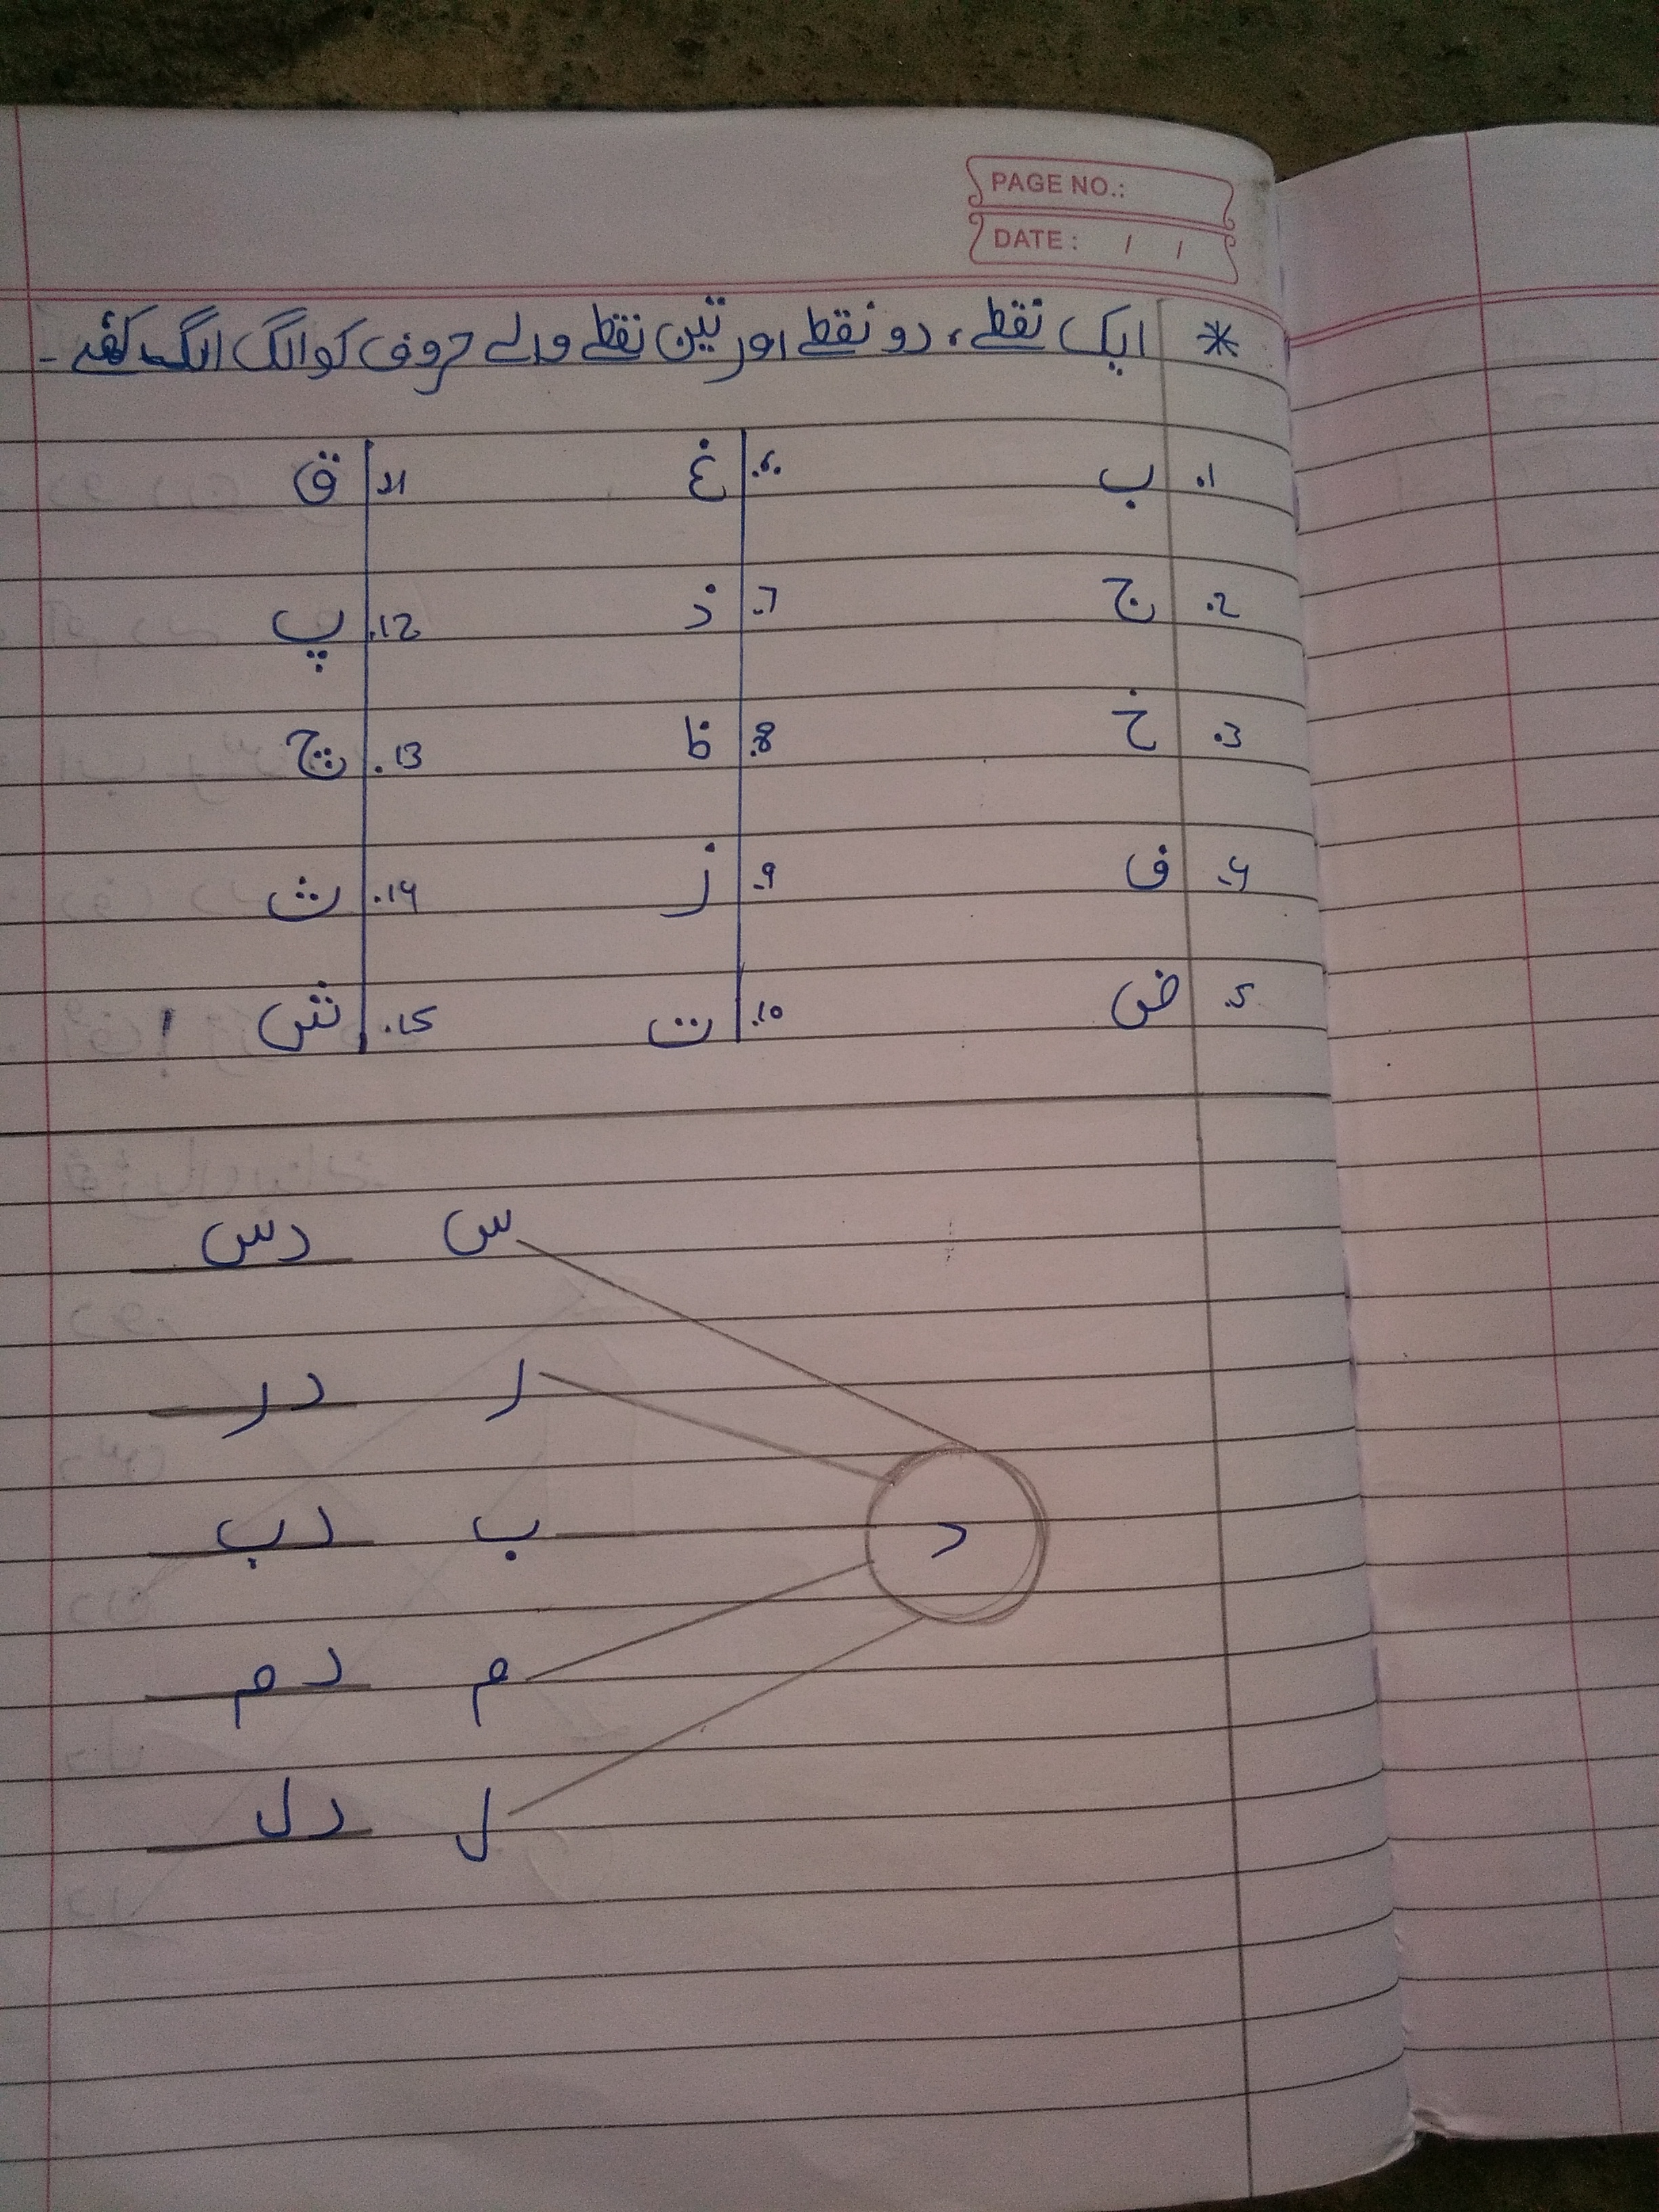 PAGE NO.:
DATE: / /
* ایک نقطے، دو نقطے اور تین نقطے والے حروف کو الگ الگ لکھئے۔
1. ب 6. غ 11. ق
2. ج 7. ذ 12. پ
3. خ 8. ظ 13. چ
4. ف 9. ز 14. ث
5. ض 10. ت 15. ش
س دس
ر در
ب دب
د
م دم
ل دل